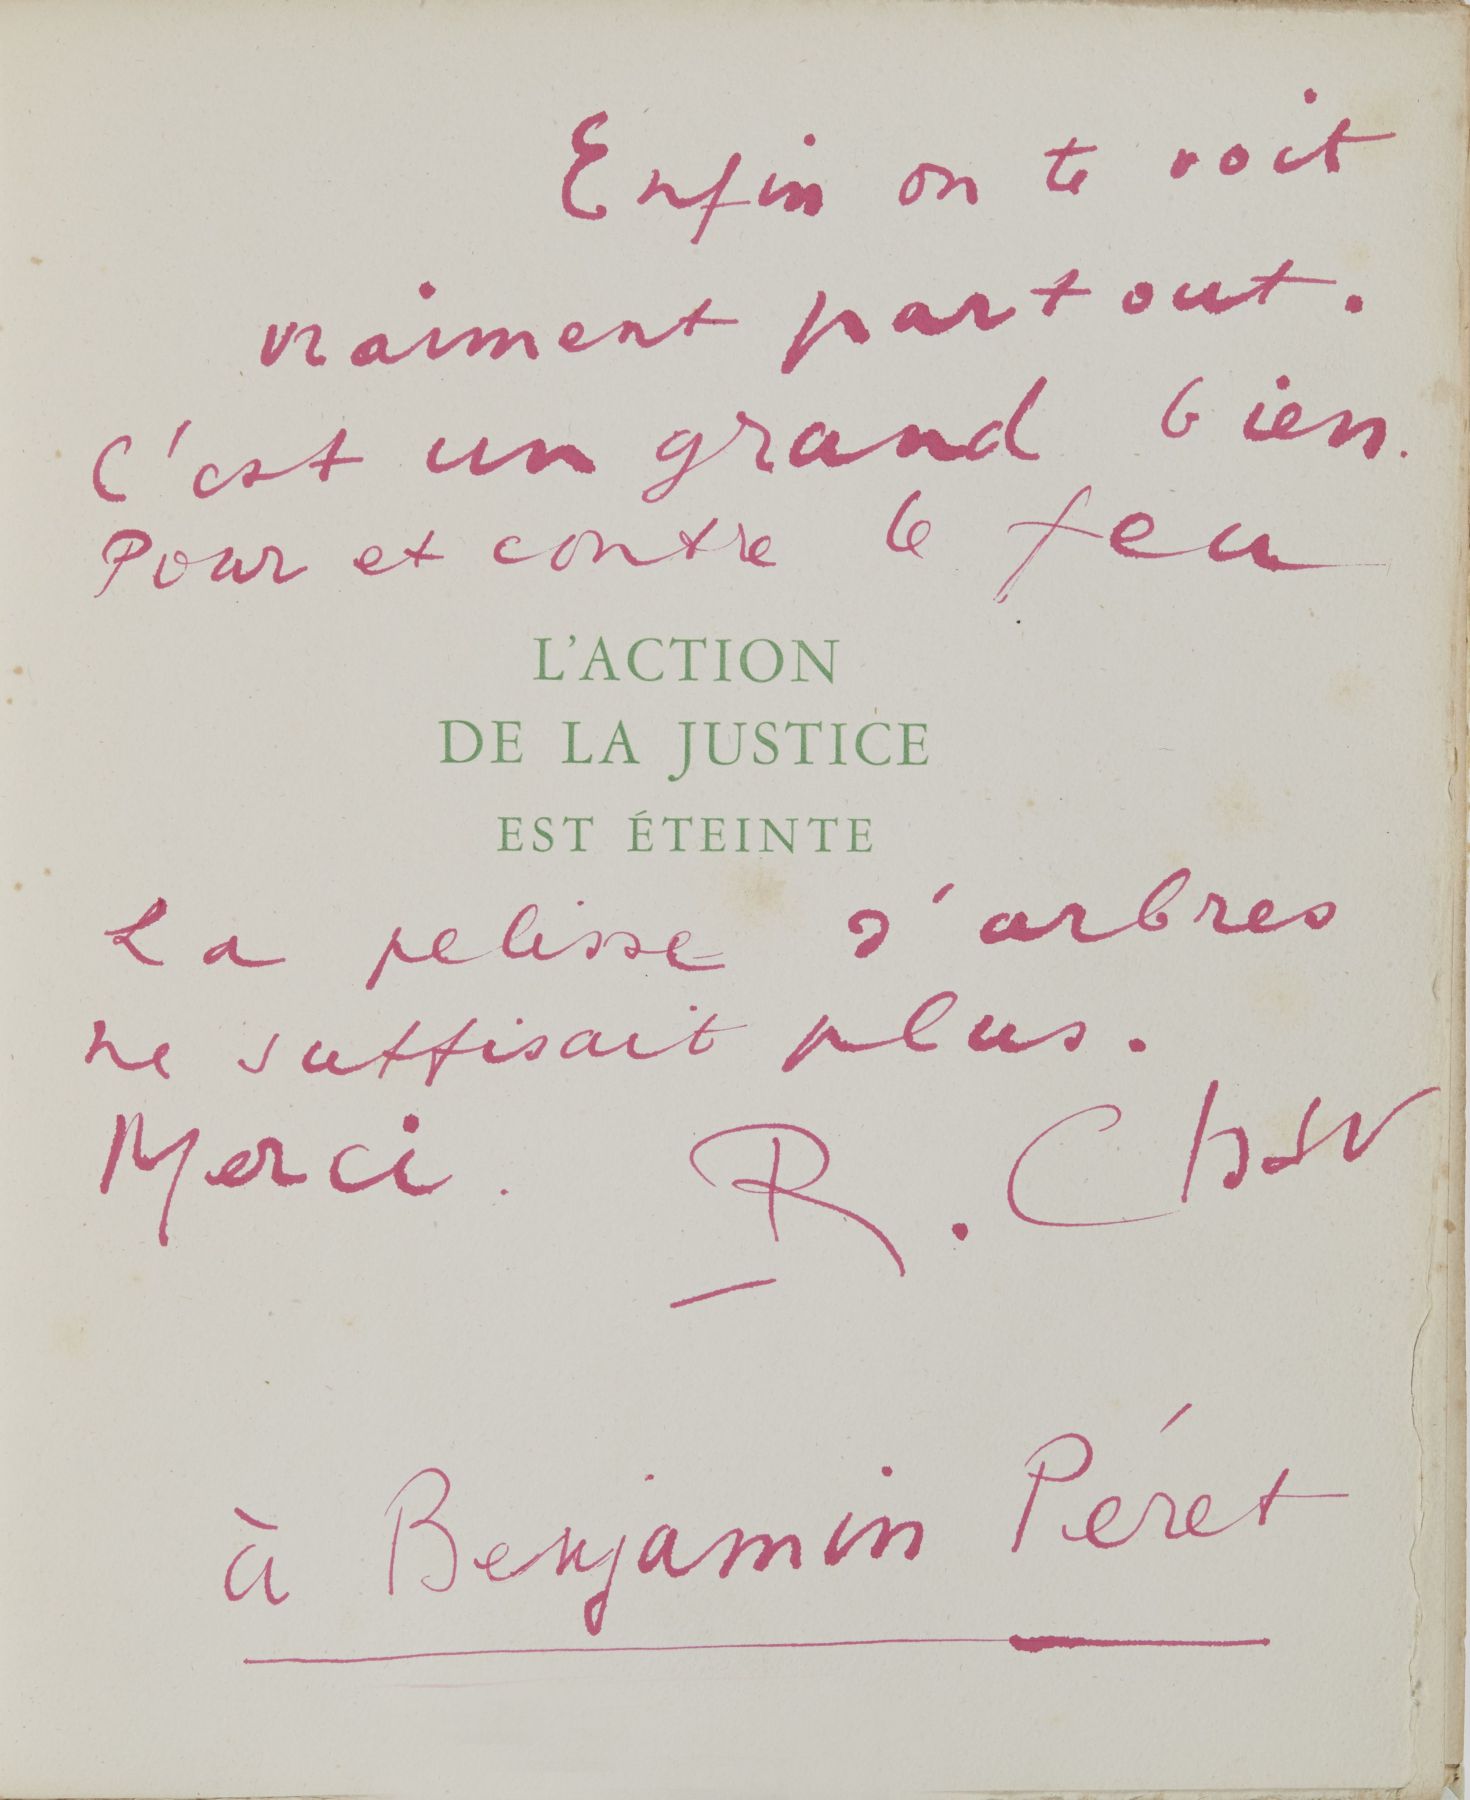 Enfin on te voit
vraiment partout.
C'est un grand bien.
Pour et contre le feu
L'ACTION
DE LA JUSTICE
EST ÉTEINTE
La pelisse d'arbres
ne suffisait plus.
Merci. R. Char
à Benjamin Péret